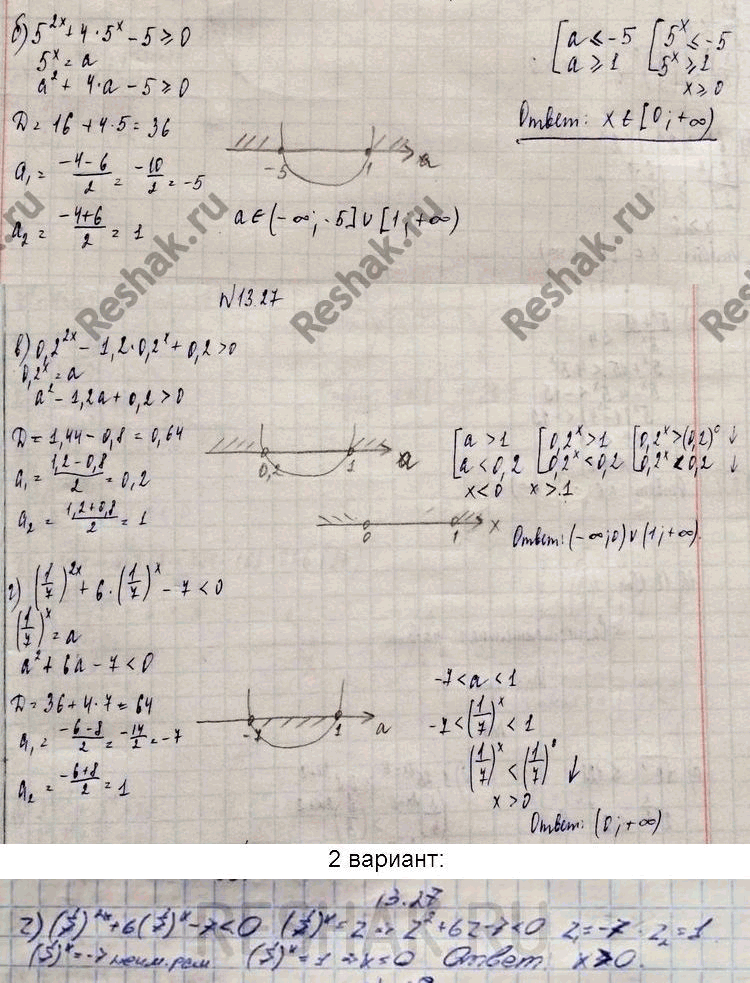 б) 5^{2x} + 4·5^x - 5 ≥ 0
5^x = a
a² + 4·a - 5 ≥ 0
D = 16 + 4·5 = 36
a₁ = (-4-6)/2 = -10/2 = -5
a₂ = (-4+6)/2 = 1
-5 1 a
a ∈ (-∞; -5] ∪ [1; +∞)
[a ≤ -5 [5^x ≤ -5
a ≥ 1 5^x ≥ 1
x ≥ 0
Ответ: x ∈ [0; +∞)
N 13.27
в) 0,2^{2x} - 1,2·0,2^x + 0,2 > 0
0,2^x = a
a² - 1,2a + 0,2 > 0
D = 1,44 - 0,8 = 0,64
a₁ = (1,2-0,8)/2 = 0,2
a₂ = (1,2+0,8)/2 = 1
0,2 1 a
[a > 1 [0,2^x > 1 [0,2^x > (0,2)^0 ↓
a < 0,2 0,2^x < 0,2 0,2^x < 0,2 ↓
x < 0 x > 1
0 1 x
Ответ: (-∞; 0) ∪ (1; +∞).
г) (1/7)^{2x} + 6·(1/7)^x - 7 < 0
(1/7)^x = a
a² + 6a - 7 < 0
D = 36 + 4·7 = 64
a₁ = (-6-8)/2 = -14/2 = -7
a₂ = (-6+8)/2 = 1
-7 1 a
-7 < a < 1
-7 < (1/7)^x < 1
(1/7)^x < (1/7)^0 ↓
x > 0
Ответ: (0; +∞)
Reshak.ru
Reshak.ru
Reshak.ru
Reshak.ru
2 вариант:
13.27
г) (1/7)^{2x} + 6(1/7)^x - 7 < 0 (1/7)^x = z z² + 6z - 7 < 0 z₁ = -7 z₂ = 1
(1/7)^x = -7 не им. реш (1/7)^x = 1 ⇒ x = 0 Ответ x > 0.
RESHAK.RU